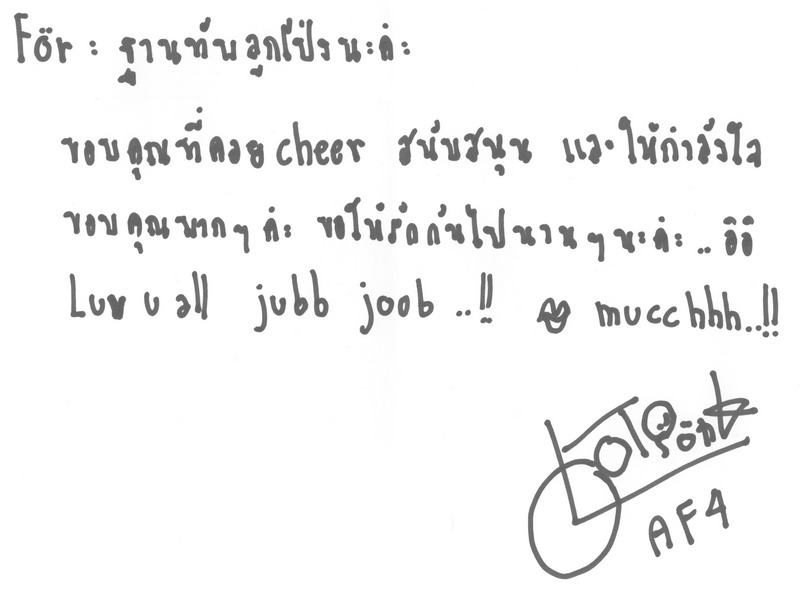 För : ฐานทัพลูกโป่งนะค่ะ
ขอบคุณที่คอย cheer สนับสนุน และให้กำลังใจ
ขอบคุณมากๆ ค่ะ ขอให้รักกันไปนานๆ นะค่ะ .. อิอิ
Luv u all jubb joob ..!! mucchhh..!!
AF4